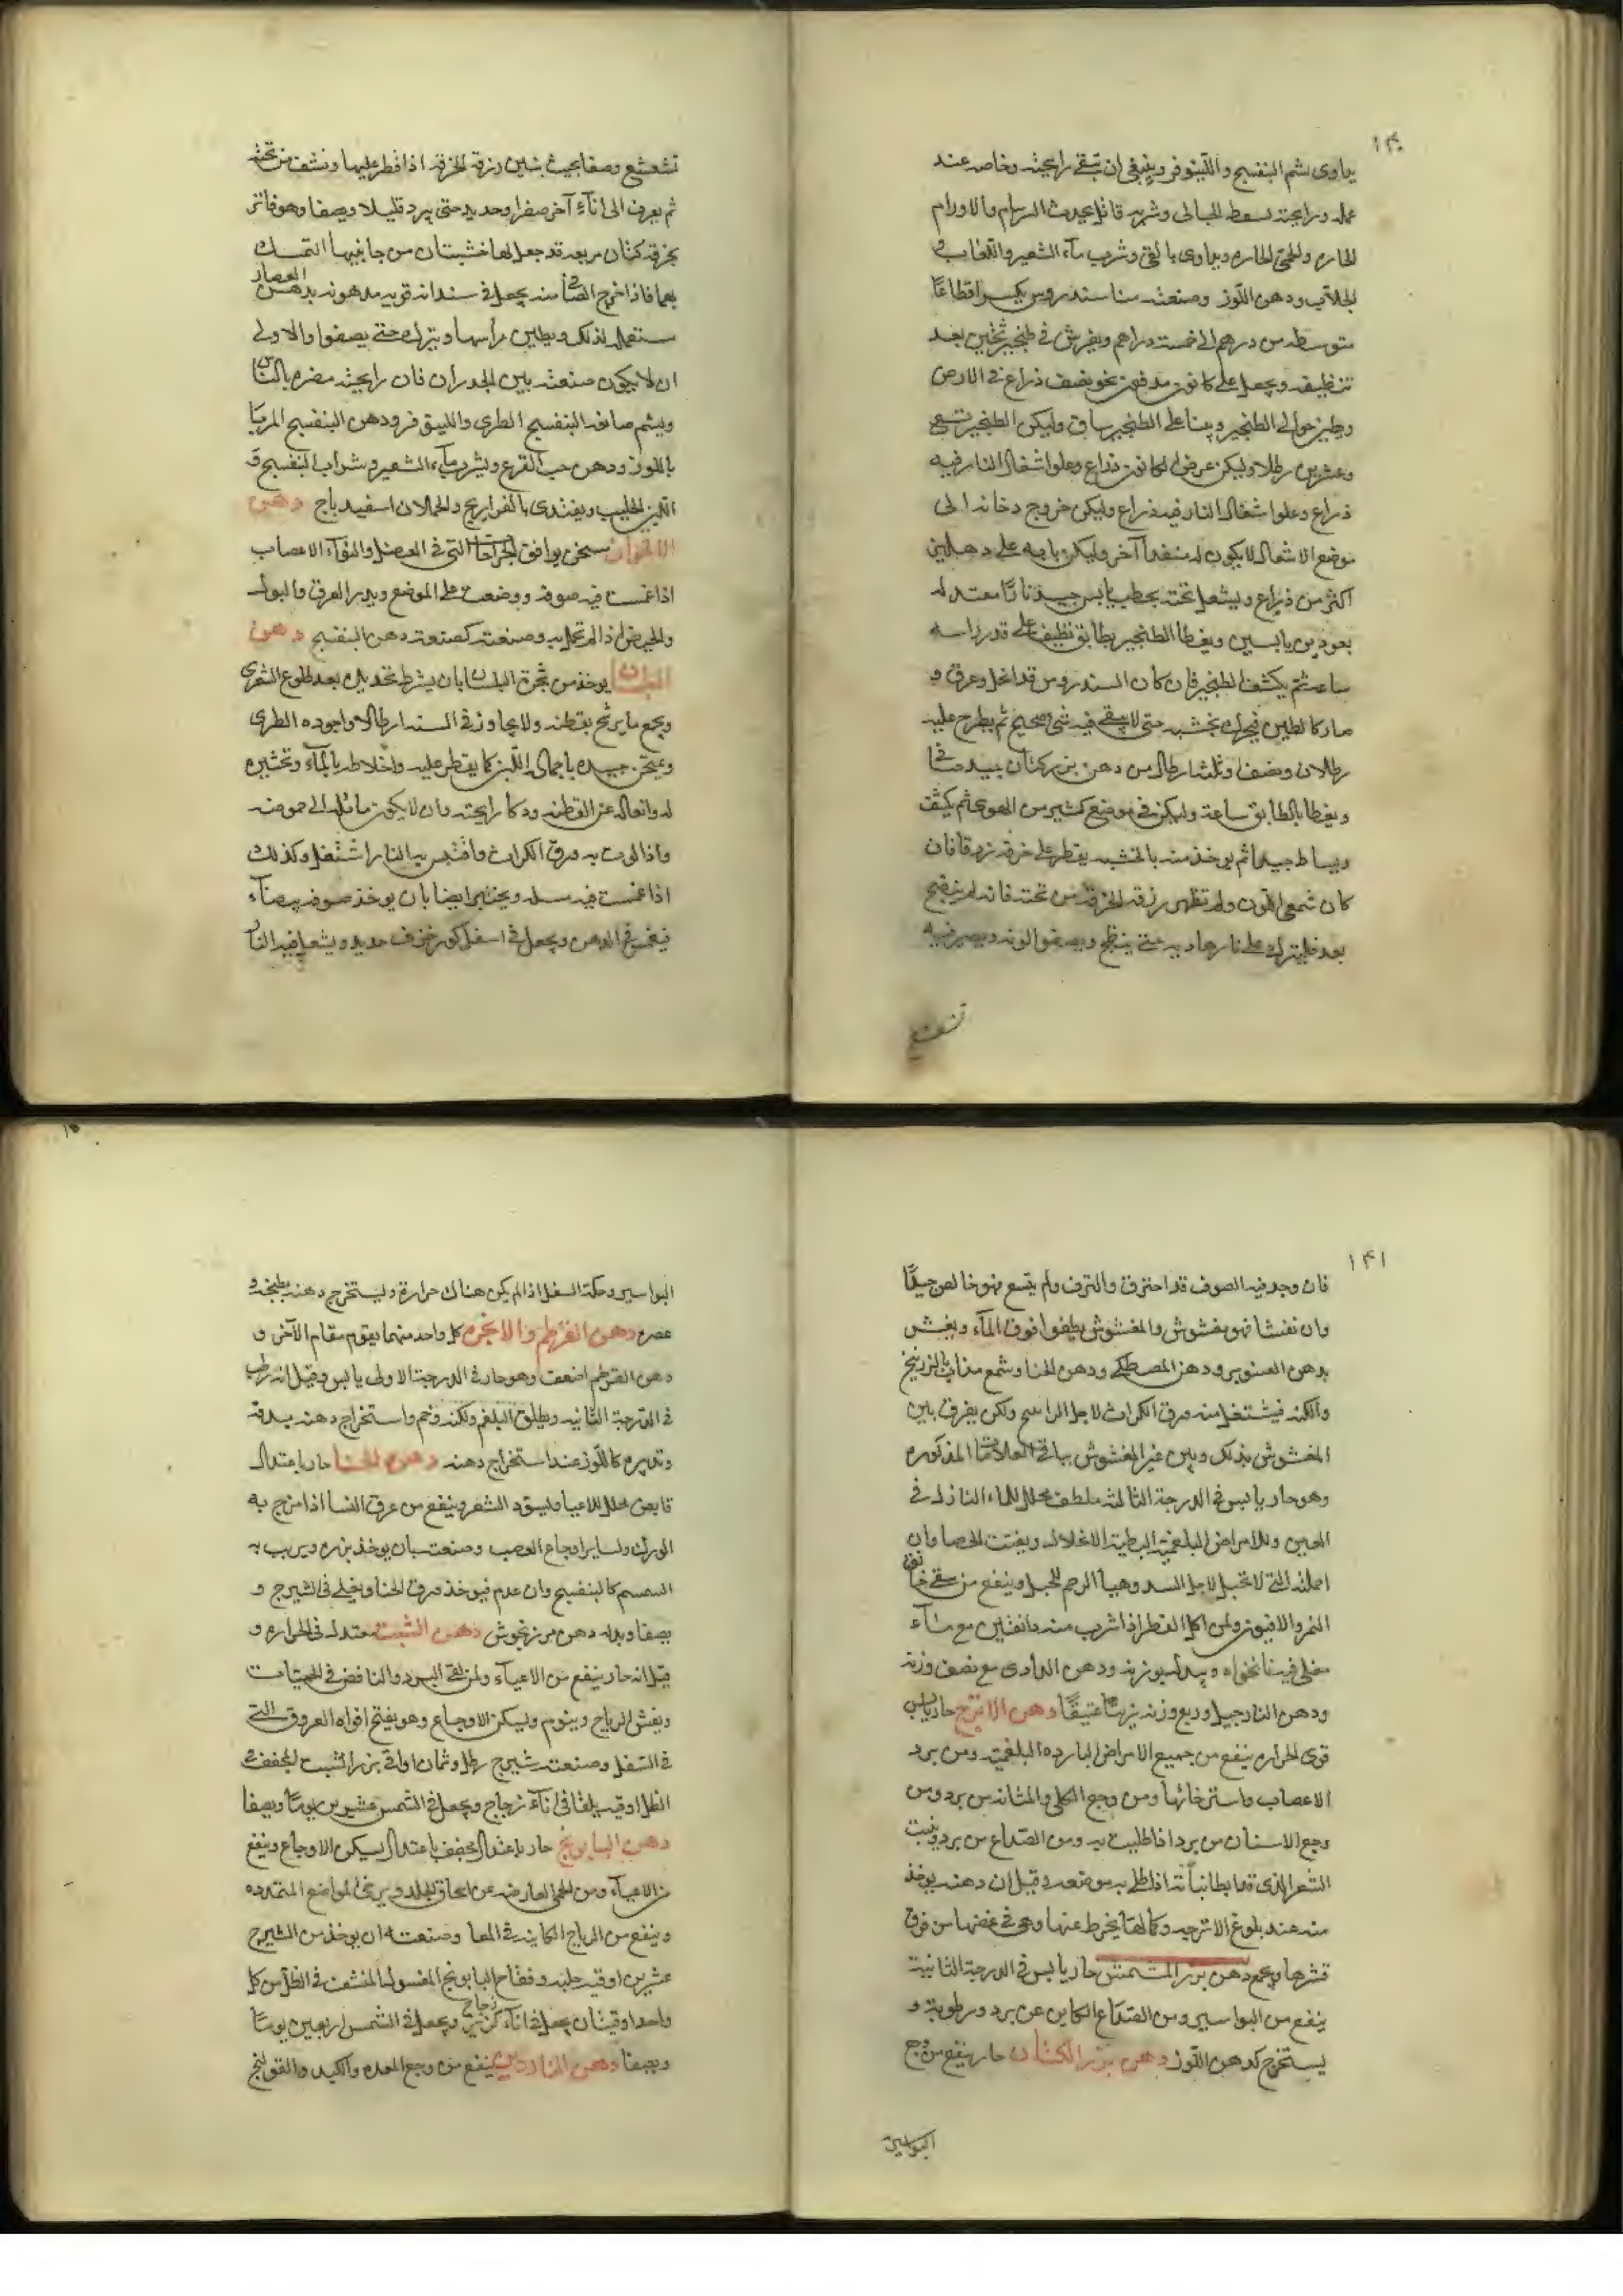 ١٣٠
يداوى بشم البنفسج واللينوفر وينبغى ان تبقى رايحته وخاصه عند
عمله ورايحته تسقط الحبالى وشربه قاتل يحدث السرسام والاورام
الحاره والحمى الحاره ويداوى بالقى وشرب مآء الشعير واللعاب و
الجلاب ودهن اللوز وصنعته منا سندروس يكسر اقطاعًا
متوسطه من درهم الى خمسة دراهم ويفرش فى طنجير ثخين بعد
تنظيفه ويجعل على كانون مدفون نحو نصف ذراع فى الارض
ويطين حوالى الطنجير ويبنا على الطنجير ساق وليكن الطنجير تسع
وعشرين رطلا وليكن عرض الكانون ذراع وعلو اشعال النار فيه
ذراع وعلو اشعال النار فيه ذراع وليكن خروج دخانه الى
موضع الاشعال لا يكون له منفدا آخر وليكن بابه على دهليز
اكثر من ذراع ويشعل تحته بحطب يابس جيد نارًا معتدله
بعودين يابسين ويغطا الطنجير بطابق نظيف على قدر راسه
ساعه ثم يكشف الطنجير فان كان السندروس قد انحل وعرق و
صار كالطين فيحرك بخشبه حتى لا يبقى فيه شى صحيح ثم يطرح عليه
رطلان ونصف وثلثا رطل من دهن بزر كتان جيد صافى
ويغطا بالطابق ساعة وليكن فى موضع كثير من الهوى ثم يكشف
ويساط جيدا ثم يوخذ منه بالخشبه يقطر على خرقه زرقا فان
كان شمعى اللون ولم تظهر زرقه الخرقه من تحته فانه لم ينضج
بعد فليترك على نار هاديه حتى ينضج ويصفو لونه ويصير فيه
تشعشع
تشعشع وصفا بحيث يتبين زرقة الخرقه اذا قطر عليها ونشف من تحته
ثم يغرف الى انآء آخر صفر او حديد حتى يبرد قليلا ويصفا وهو فاتر
بخرقه كتان مربعه قد جعل لها خشبتان من جانبيها التمسك
بهما فاذا خرج الصافى منه يجعل فى سندانه قويه مدهونه بدهن العصار
ستعمل لذلك ويطين راسها ويترك حتى يصفوا والاولى
ان لا يكون صنعته بين الجدران فان رايحته مضره بالناس
ويشم صانعه البنفسج الطرى واللينوفر ودهن البنفسج المربا
باللوز ودهن حب القرع ويشرب مآء الشعير وشراب البنفسج و
اللبن الحليب ويغتدى بالفراريج والحملان اسفيدباج دهن
الاقحوان سخن يوافق الجراحات التى فى العضل والتوآء الاعصاب
اذا غمست فيه صوفه ووضعت على الموضع ويدر العرق والبول
والحيض اذا لم تحمل به وصنعته كصنعته دهن البنفسج دهن
البلسان يوخذ من شجرة البلسان بان يشرط بحديده بعد طلوع الشعرى
ويجمع ما يرشح بقطنه ولا يجاوز فى السنه ارطالا واجوده الطرى
ويمتحن جيده باجماله اللبن كما يقطر عليه واخلاطه بالمآء وتخثيره
له وانغساله عن القطنه وذكا رايحته وان لا يكون مائلا الى حموضه
واذا لوث به ورق الكراث واقتبس به النار اشتعل وكذلك
اذا غمست فيه مسله ويختبر ايضا بان يوخذ صوفه بيضآء
فيغمس فى الدهن ويجعل فى اسفل كوز خزف جديد ويشعل فيه النار
١٣١
فان وجد فيه الصوف قد احترق والتزف ولم يتسع فهو خالص جيدًا
وان تفشا فهو مغشوش والمغشوش يطفوا فوق المآء ويغش
بدهن الصنوبر ودهن المصطكى ودهن الحنا وشمع مذاب بالزرنيخ
واللكنه فيشتعل منه ورق الكراث لاجل الراسخ ولكن يفرق بين
المغشوش بذلك وبين غير المغشوش بباقى العلامات المذكوره
وهو حار يابس فى الدرجة الثالثه ملطف محلل للماء النازل فى
العين وللامراض البلغميه البطيه الانحلال ويفتت الحصا وان
احملته التى لا تحبل لاجل السدد وهيا الرحم للحبل وينفع من سقى خانق
النمر والافيون ولمن اكل الفطر اذا شرب منه دانقين مع مآء
مغلى فيه نانخواه وبدله بوزنه ودهن الدادى مع نصف وزنه
ودهن النارجيل وربع وزنه زيتًا عتيقًا دهن الاترج حار يابس
قوى الحراره ينفع من جميع الامراض البارده البلغميه ومن برد
الاعصاب واسترخائها ومن وجع الكلى والمثانه من برد ومن
وجع الاسنان من برد اذا طليت به ومن الصداع من برد وينبت
الشعر الذى قد ابطا نباته اذا طلى به موضعه وقيل ان دهنه يوخذ
منه عند بلوغ الاترجيه وكمالها يخرط عنها وهى فى غصنها من فوق
قشرها ويجمع دهن بزر المشمش حار يابس فى الدرجة الثانية
ينفع من البواسير ومن الصداع الكاين عن برد ورطوبة و
يستخرج كدهن اللوز دهن بزر الكتان حار ينفع من وجع
البواسير
البواسير وحكة السفل اذا لم يكن هناك حرارة ويستخرج دهنه بطبخه و
عصره دهن القرطم والانجره كل واحد منهما يقوم مقام الآخر و
دهن القرطم اضعف وهو حار فى الدرجة الاولى يابس وقيل انه رطب
فى الدرجة الثانيه ويطلق البلغم ولكنه وخم واستخراج دهنه بدقه
وتدبيره كاللوز عند استخراج دهنه دهن الحنا حار باعتدال
قابض محلل للاعيا ويسود الشعر وينفع من عرق النسا اذا مرخ به
الورك ولساير اوجاع العصب وصنعته بان يوخذ بزره ويربب به
السمسم كالبنفسج وان عدم فيوخذ ورق الحنا ويغلى فى الشيرج و
يصفا وبدله دهن مرزنجوش دهن الشبت معتدل فى الحراره و
قيل انه حار ينفع من الاعيآء ولمن لقى البرد والنافض فى الحميات
ويفش الرياح وينوم ويسكن الاوجاع وهو يفتح افواه العروق التى
فى السفل وصنعته شيرج رطل وثمان اواقى بزر الشبت المجفف فى
الظل اوقيه يلقا فى انآء زجاج ويجعل فى الشمس عشرين يومًا ويصفا
دهن البابونج حار باعتدال مجفف باعتدال يسكن الاوجاع وينفع
من الاعيآء ومن الحمى العارضه عن احصاف الجلد ويرخى المواضع المتمدده
وينفع من الرياح الكاينه فى المعا وصنعته ان يوخذ من الشيرج
عشرين اوقيه حلبه وفقاح البابونج المغسول المنشف فى الظل من كل
واحد اوقيتان يجعل فى انآء زجاج ويجعل فى الشمس اربعين يومًا
ويصفا دهن الناردين ينفع من وجع المعده والكبد والقولنج